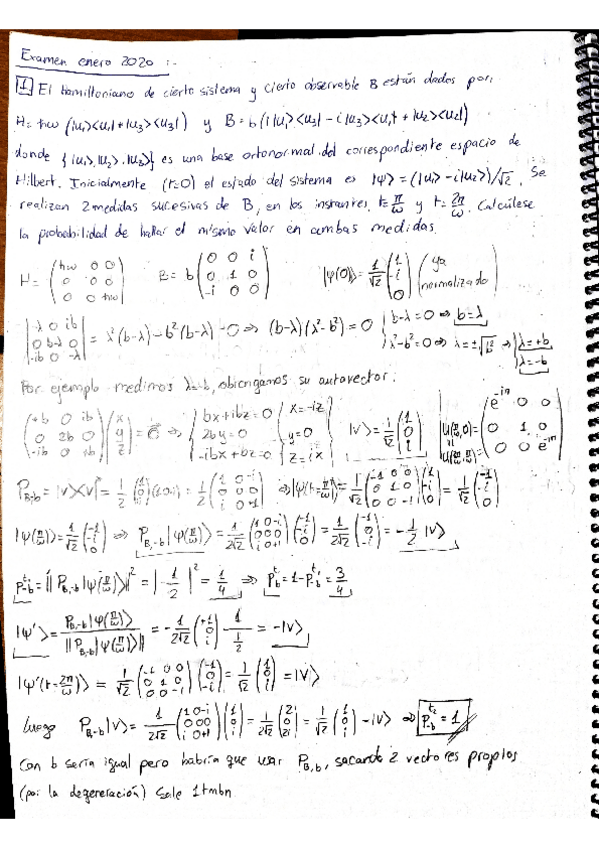 Examen enero 2020 :-
1 El hamiltoniano de cierto sistema y cierto observable B están dados por:
H = ħω (|u₁><u₁| + |u₃><u₃|) y B = b (i|u₁><u₃| - i|u₃><u₁| + |u₂><u₂|)
donde {|u₁>, |u₂>, |u₃>} es una base ortonormal del correspondiente espacio de
Hilbert. Inicialmente (t=0) el estado del sistema es |ψ> = (|u₁> - i|u₂>)/√2. Se
realizan 2 medidas sucesivas de B, en los instantes t=π/ω y t=2π/ω. Calcúlese
la probabilidad de hallar el mismo valor en ambas medidas.
H = (ħω 0 0 / 0 0 0 / 0 0 ħω) B = b (0 0 i / 0 1 0 / -i 0 0) |ψ(0)> = 1/√2 (1 / -i / 0) (ya normalizado)
|-λ 0 ib / 0 b-λ 0 / -ib 0 -λ| = λ²(b-λ) - b²(b-λ) = 0 ⇒ (b-λ)(λ²-b²) = 0 { b-λ=0 ⇒ b=λ / λ²-b²=0 ⇒ λ=±√b² ⇒ λ=+b / λ=-b
Por ejemplo medimos λ=-b, obtengamos su autovector:
(+b 0 ib / 0 2b 0 / -ib 0 +b) (x / y / z) = 0 ⇒ { bx+ibz=0 / 2by=0 / -ibx+bz=0 { x=-iz / y=0 / z=ix |v> = 1/√2 (1 / 0 / i) U(π/ω,0) = (e^-iπ 0 0 / 0 1 0 / 0 0 e^-iπ)
P_B,-b = |v><v| = 1/2 (1 / 0 / i) (1 0 -i) = 1/2 (1 0 -i / 0 0 0 / i 0 1) ⇒ |ψ(t=π/ω)> = 1/√2 (-1 0 0 / 0 1 0 / 0 0 -1) (1 / -i / 0) = 1/√2 (-1 / -i / 0)
|ψ(π/ω)> = 1/√2 (-1 / -i / 0) ⇒ P_B,-b |ψ(π/ω)> = 1/2√2 (1 0 -i / 0 0 0 / i 0 +1) (-1 / -i / 0) = 1/2√2 (-1 / 0 / -i) = -1/2 |v>
P_-b^t₁ = || P_B,-b |ψ(π/ω)> ||² = |-1/2|² = 1/4 ⇒ P_b^t₁ = 1 - P_-b^t₁ = 3/4
|ψ'> = P_B,-b |ψ(π/ω)> / || P_B,-b |ψ(π/ω)> || = -1/2√2 (+1 / 0 / i) 1/(1/2) = -|v>
|ψ'(t=2π/ω)> = 1/√2 (-1 0 0 / 0 1 0 / 0 0 -1) (-1 / 0 / -i) = 1/√2 (1 / 0 / i) = |v>
Luego P_B,-b |v> = 1/2√2 (1 0 -i / 0 0 0 / i 0 +1) (1 / 0 / i) = 1/2√2 (2 / 0 / 2i) = 1/√2 (1 / 0 / i) = |v> ⇒ P_-b^t₂ = 1
Con b sería igual pero habría que usar P_B,b, sacando 2 vectores propios
(por la degereración) Sale 1 tmbn